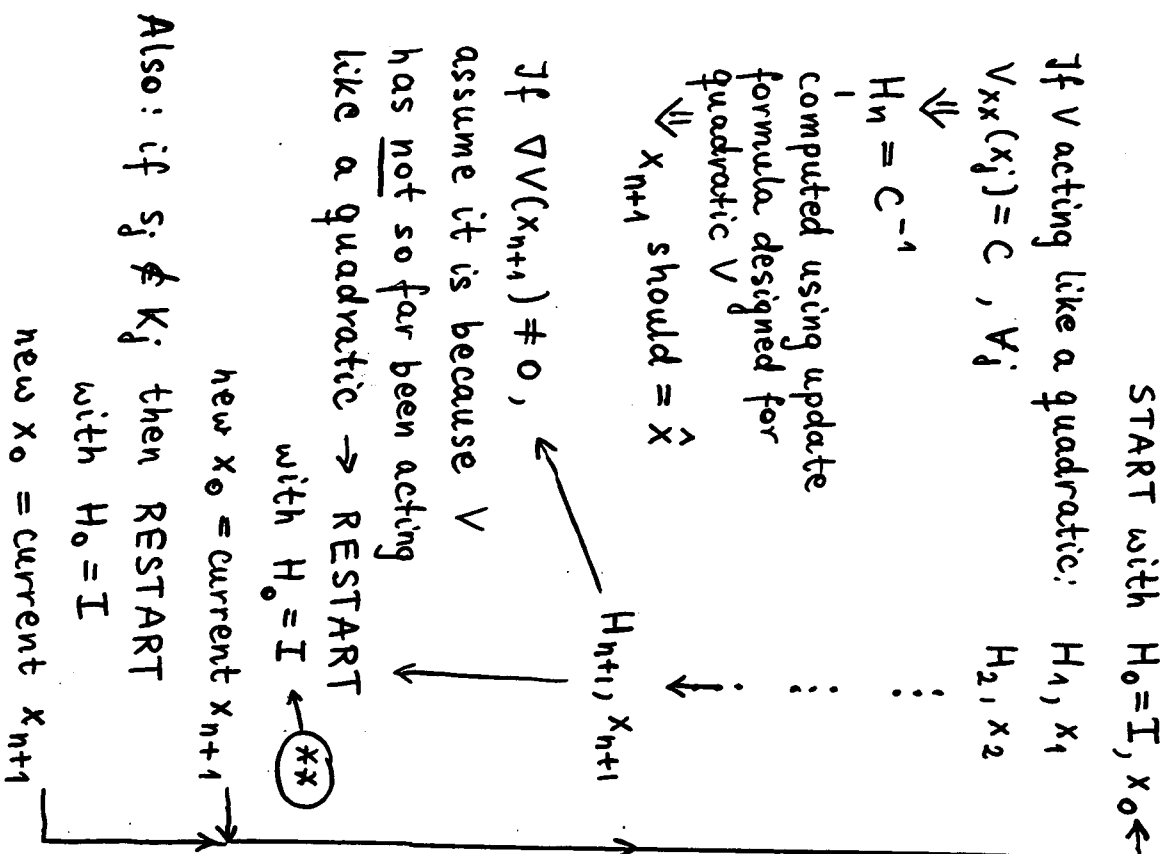 START with H₀ = I, x₀ ←
If V acting like a quadratic: H₁, x₁
Vₓₓ(xⱼ) = C , ∀j H₂, x₂
⇓ ...
Hₙ = C⁻¹ ...
computed using update
formula designed for
quadratic V
⇓ xₙ₊₁ should = x̂
Hₙ₊₁, xₙ₊₁
If ∇V(xₙ₊₁) ≠ 0,
assume it is because V
has not so far been acting
like a quadratic → RESTART
with H₀ = I ← **
new x₀ = current xₙ₊₁
Also: if sⱼ ∉ Kⱼ then RESTART
with H₀ = I
new x₀ = current xₙ₊₁